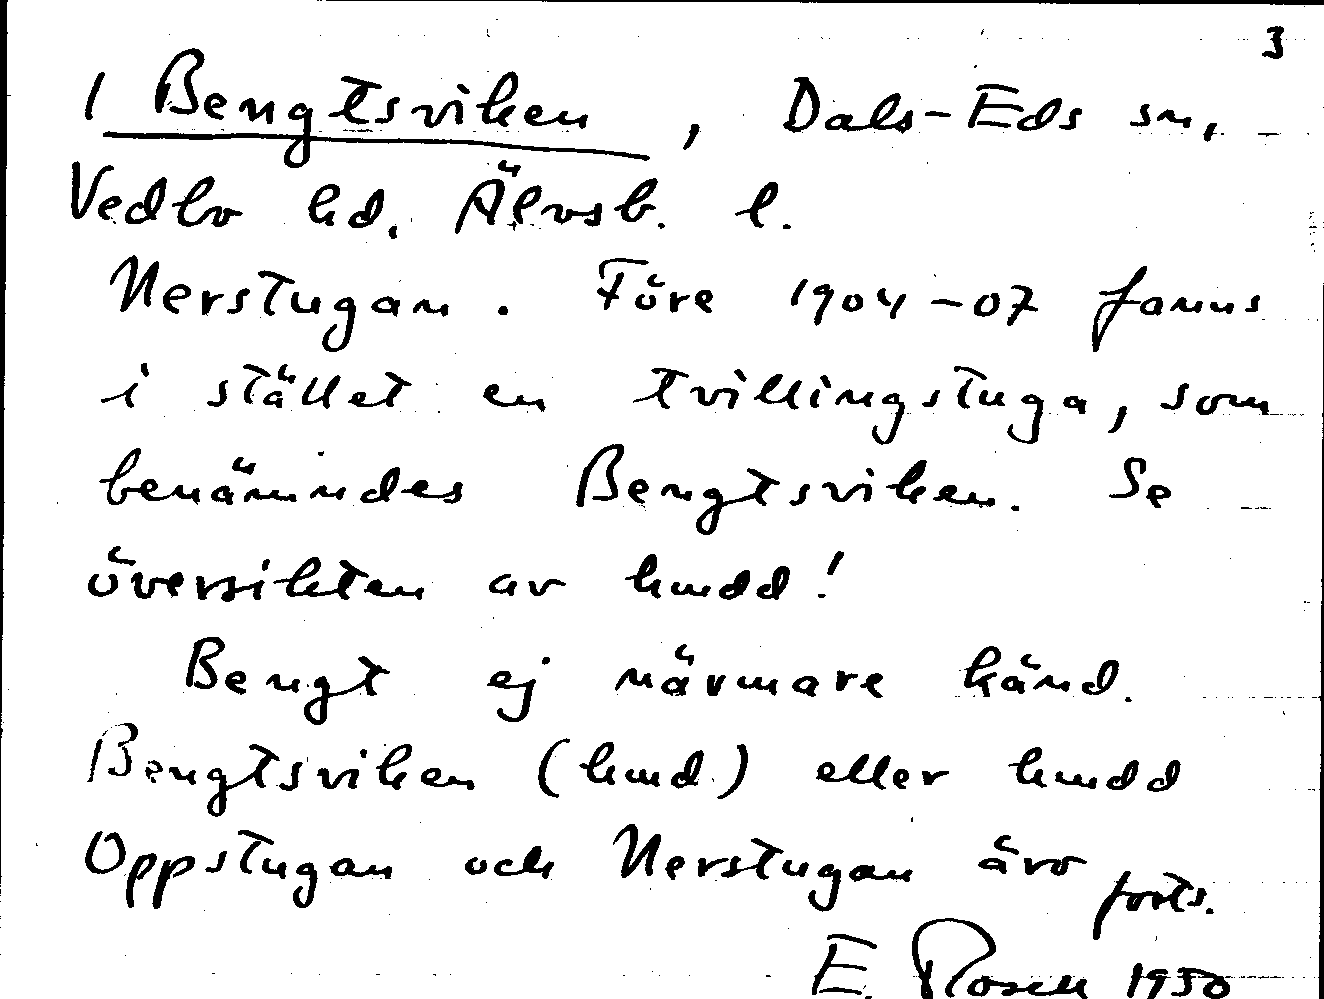 3
1 Bengtsviken, Dals-Eds sn,
Vedbo hd. Älvsb. l.
Nerstugan. Före 1904-07 fanns
i stället en tvillingstuga, som
benämndes Bengtsviken. Se
översikten av hmdd!
Bengt ej närmare känd.
Bengtsviken (hmd.) eller hmdd
Oppstugan och Nerstugan äro forts.
E. Rosell 1930